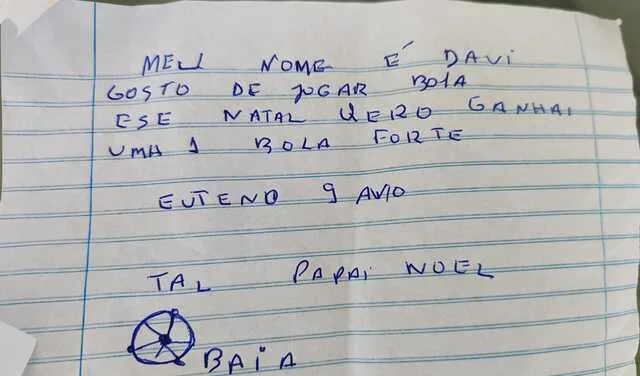 MEU NOME É DAVI
GOSTO DE JOGAR BOLA
ESE NATAL QERO GANHAI
UMA 1 BOLA FORTE
EUTENO 9 AVIO
TAL PAPAI NOEL
BAIA